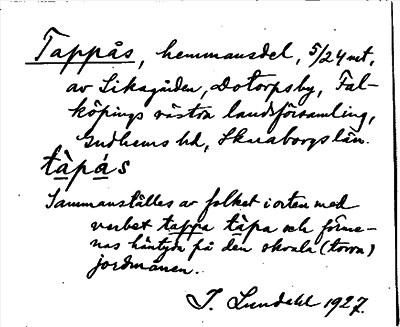 Tappås, hemmansdel, 5/24 mt,
av Siksgården, Dotorpsby, Fal-
köpings västra landsförsamling,
Gudhems hd, Skaraborgs län.
tàpås
Sammanställes av folket i orten med
verbet tappa tàpa och förme-
nas häntyda på den skrala (torra)
jordmånen.
J. Lundahl 1927.